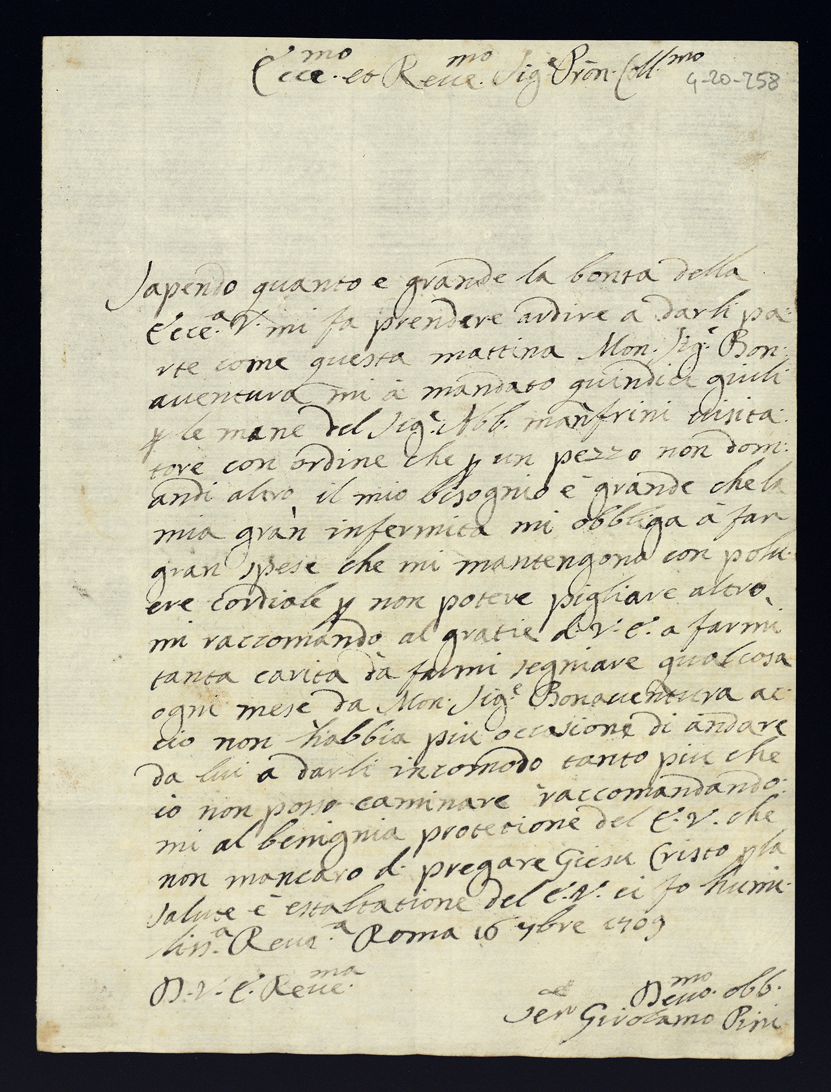 Ecce.mo et Reve.mo Sig.e Pron. Coll.mo
4-20-258
Sapendo quanto e grande la bonta della
Ecce.a V. mi fa prendere ardire a darli pa:
rte come questa mattina Mon. Sig.e Bon:
aventura mi à mandato quindici giuli
p le mane del Sig.e Abb. manfrini visita:
tore con ordine che p un pezzo non dom:
andi altro il mio bisognio e grande che la
mia gran infermita mi obbliga à far
gran spese che mi mantengono con polu:
ere cordiale p non potere pigliare altro
mi raccomando al gratie di V. E. a farmi
tanta carita dà farmi segniare qualcosa
ogni mese da Mon. Sig.e Bonaventura ac:
cio non habbia piu occasione di andare
da lui a darli incomodo tanto piu che
io non posso caminare raccomandando:
mi al benignia protetione del E. V. che
non mancaro di pregare Giesu Cristo p la
salute è essaltatione del E. V. ei fo humi:
liss.a Reve.a Roma 16 7bre 1709
D. V. E. Reve.ma
Devo.mo obb.
Ser Girolamo Pini